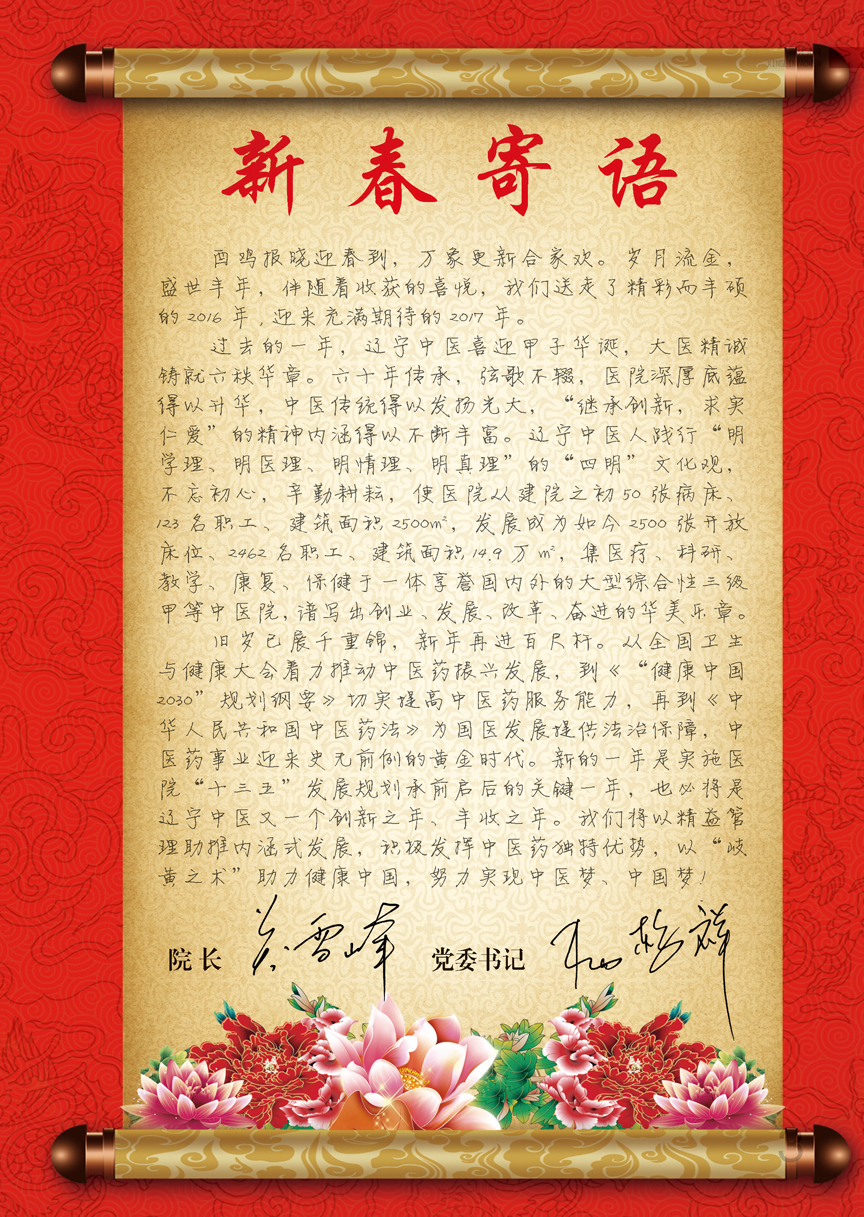 新春寄语
酉鸡报晓迎春到，万象更新合家欢。岁月流金，
盛世丰年，伴随着收获的喜悦，我们送走了精彩而丰硕
的2016年，迎来充满期待的2017年。
过去的一年，辽宁中医喜迎甲子华诞，大医精诚
铸就六秩华章。六十年传承，弦歌不辍，医院深厚底蕴
得以升华，中医传统得以发扬光大，“继承创新，求实
仁爱”的精神内涵得以不断丰富。辽宁中医人践行“明
学理、明医理、明情理、明真理”的“四明”文化观，
不忘初心，辛勤耕耘，使医院从建院之初50张病床、
123名职工、建筑面积2500㎡，发展成为如今2500张开放
床位、2462名职工、建筑面积14.9万㎡，集医疗、科研、
教学、康复、保健于一体享誉国内外的大型综合性三级
甲等中医院，谱写出创业、发展、改革、奋进的华美乐章。
旧岁已展千重锦，新年再进百尺杆。从全国卫生
与健康大会着力推动中医药振兴发展，到《“健康中国
2030”规划纲要》切实提高中医药服务能力，再到《中
华人民共和国中医药法》为国医发展提供法治保障，中
医药事业迎来史无前例的黄金时代。新的一年是实施医
院“十三五”发展规划承前启后的关键一年，也必将是
辽宁中医又一个创新之年、丰收之年。我们将以精益管
理助推内涵式发展，积极发挥中医药独特优势，以“岐
黄之术”助力健康中国，努力实现中医梦、中国梦！
院长 雪峰 党委书记 祥